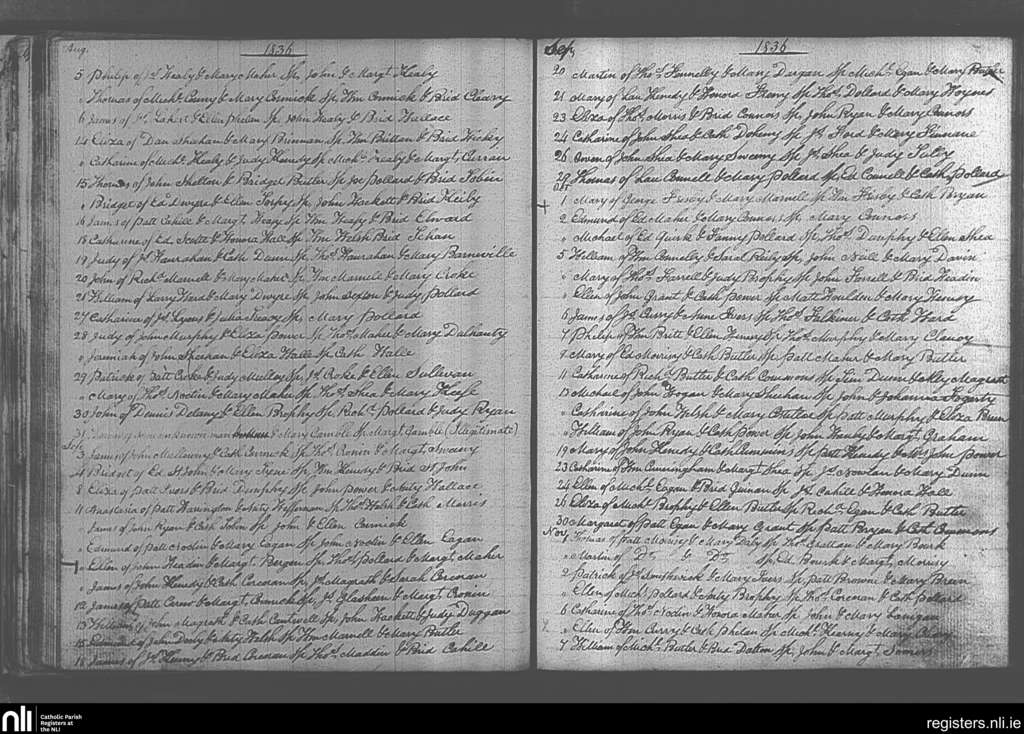 Aug.
1836
5 Philip of Js Healy & Mary Maher Sp. John & Margt Healy
" Thomas of Michl Curry & Mary Cormick Sp. Wm Cormick & Brid Cleary
6 James of & Ellen Phelan Sp. John Healy & Brid Wallace
14 Eliza of Dan Sheehan & Mary Brennan Sp. Wm Brittan & Brid Hickey
" Catharine of Michl Healy & Judy Hendy Sp. Michl Healy & Margt Curran
15 Thomas of John Shelton & Bridget Butler Sp. Joe Pollard & Brid Tobin
" Bridget of Ed Dwyre & Ellen Torpy Sp. John Hackett & Brid
16 James of Patt Cahill & Margt Heafy Sp. Wm Heafy & Brid Elward
18 Catharine of Ed. Scutt & Honora Hall Sp. Wm Welsh Brid
19 Judy of Js Hanrahan & Cath Dunn Sp. Thos Hanrahan & Mary Barneville
20 John of Richd Marnell & Mary Maher Sp. Wm Marnell & Mary Croke
21 William of Larry Ward & Mary Dwyre Sp. John Sexton & Judy Pollard
27 Catharine of Js Lyons & Julia Tracy Sp. Mary Pollard
28 Judy of John Murphy & Eliza Power Sp. Thos Maher & Mary Dalhanty
" Jeremiah of John Sheehan & Eliza Walle Sp. Cath Walle
29 Patrick of Patt Croke & Judy Mulloy Sp. Js Croke & Ellen Sullivan
" Mary of Thos Noctin & Mary Maher Sp. Thos Shea & Mary Keefe
30 John of Dennis Delany & Ellen Brophy Sp. Richd Pollard & Judy Ryan
31 unknown man & Mary Gamble Sp. Margt Gamble (Illegitimate)
3 James of John Mullowny & Cath Cormick Sp. Thos Cronin & Margt Sweeny
4 Bridget of Ed St John & Mary Sp. Wm Hendy & Brid St John
8 Eliza of Patt Ivors & Brid Dunphy Sp. John Power & Anty Wallace
11 Anastasia of Patt Harington & Anty Heffernan Sp. Thos Walsh & Cath Morris
" James of John Ryan & Cath Tobin Sp. John & Ellen Cormick
" Edmund of Patt Noctin & Mary Eagan Sp. John Noctin & Ellen Eagan
" Ellen of John Headin & Margt Bergen Sp. Thos Pollard & Margt Maher
" James of John Hendy & Cath Corcoran Sp. Js Magrath & Sarah Corcoran
12 James of Patt Carew & Margt Cormick Sp. Js Glasheen & Margt Cronin
13 William of John Magrath & Cath Cantwell Sp. John Hackett & Judy Duggan
15 of John Doody & Anty Walsh Sp. Wm Marnell & Mary Butler
18 James of Js Henny & Brid Corcoran Sp. Thos Madden & Brid Cahille
Sep.
1836
20 Martin of Thos Fennelly & Mary Dargan Sp. Michl Egan & Mary Butler
21 Mary of Lau Hendy & Honora Sp. Thos Dollard & Mary Hoynes
23 Eliza of Thos Morris & Brid Connors Sp. John Ryan & Mary Connors
24 Catharine of John Shea & Cath Doheny Sp. Js Ford & Mary Finnane
26 Owen of John Shea & Mary Sweeny Sp. Js Shea & Judy Tully
29 Thomas of Lau Connell & Mary Pollard Sp. Ed Connell & Cath Pollard
Oct.
1 Mary of George Frisby & Mary Marnell Sp. Wm Frisby & Cath Bryan
2 Edmund of Ed Maher & Mary Connors Sp. Mary Connors
" Michael of Ed Quirk & Fanny Pollard Sp. Thos Dunphy & Ellen Shea
5 William of Wm Connelly & Sarah Reily Sp. John Neill & Mary Davin
" Mary of Thos Farrell & Judy Brophy Sp. John Farrell & Brid Headin
" Ellen of John Grant & Cath Power Sp. Matt Houlden & Mary Henesy
6 James of Js Curry & Anne Ivers Sp. Thos Falkiner & Cath Ward
7 Philip of Wm Britt & Ellen Sp. Thos Murphy & Mary Clancy
9 Mary of Ed Moroney & Cath Butler Sp. Patt Maher & Mary Butler
11 Catharine of Richd Butler & Cath Commons Sp. Jim Dunn & Alley Magrath
13 Michael of John Hogan & Mary Sheehan Sp. John & Johanna Fogarty
" Catharine of John Welsh & Mary Brittan Sp. Patt Murphy & Eliza Breen
" William of John Ryan & Cath Power Sp. John Hendy & Margt Graham
19 Mary of John Hendy & Cath Commins Sp. Patt Hendy & Mrs John Power
23 Catharine of Wm Cunningham & Margt Shea Sp. Js Nowlan & Mary Dunn
24 Ellen of Michl Eagan & Brid Guinan Sp. Js Cahill & Honora Hall
26 Eliza of Michl Brophy & Ellen Butler Sp. Richd Egan & Cath Butler
30 Margaret of Patt Egan & Mary Grant Sp. Patt Bryan & Cath Commons
Nov. Thomas of Patt & Mary Daly Sp. Thos Grattan & Mary Bourk
" Martin of Do & Do Sp. Ed Bourk & Margt Morisy
2 Patrick of Js Smithwick & Mary Ivers Sp. Patt Browne & Mary Brien
" Ellen of Michl Pollard & Anty Brophy Sp. Thos Corcoran & Cath Pollard
6 Catharine of Thos Noctin & Honora Maher Sp. John & Mary Lanigan
" Ellen of Wm Curry & Cath Phelan Sp. Michl Kearny & Mary
7 William of Michl Butler & Brid Dalton Sp. John & Margt Somers
nli
Catholic Parish
Registers at
the NLI
registers.nli.ie